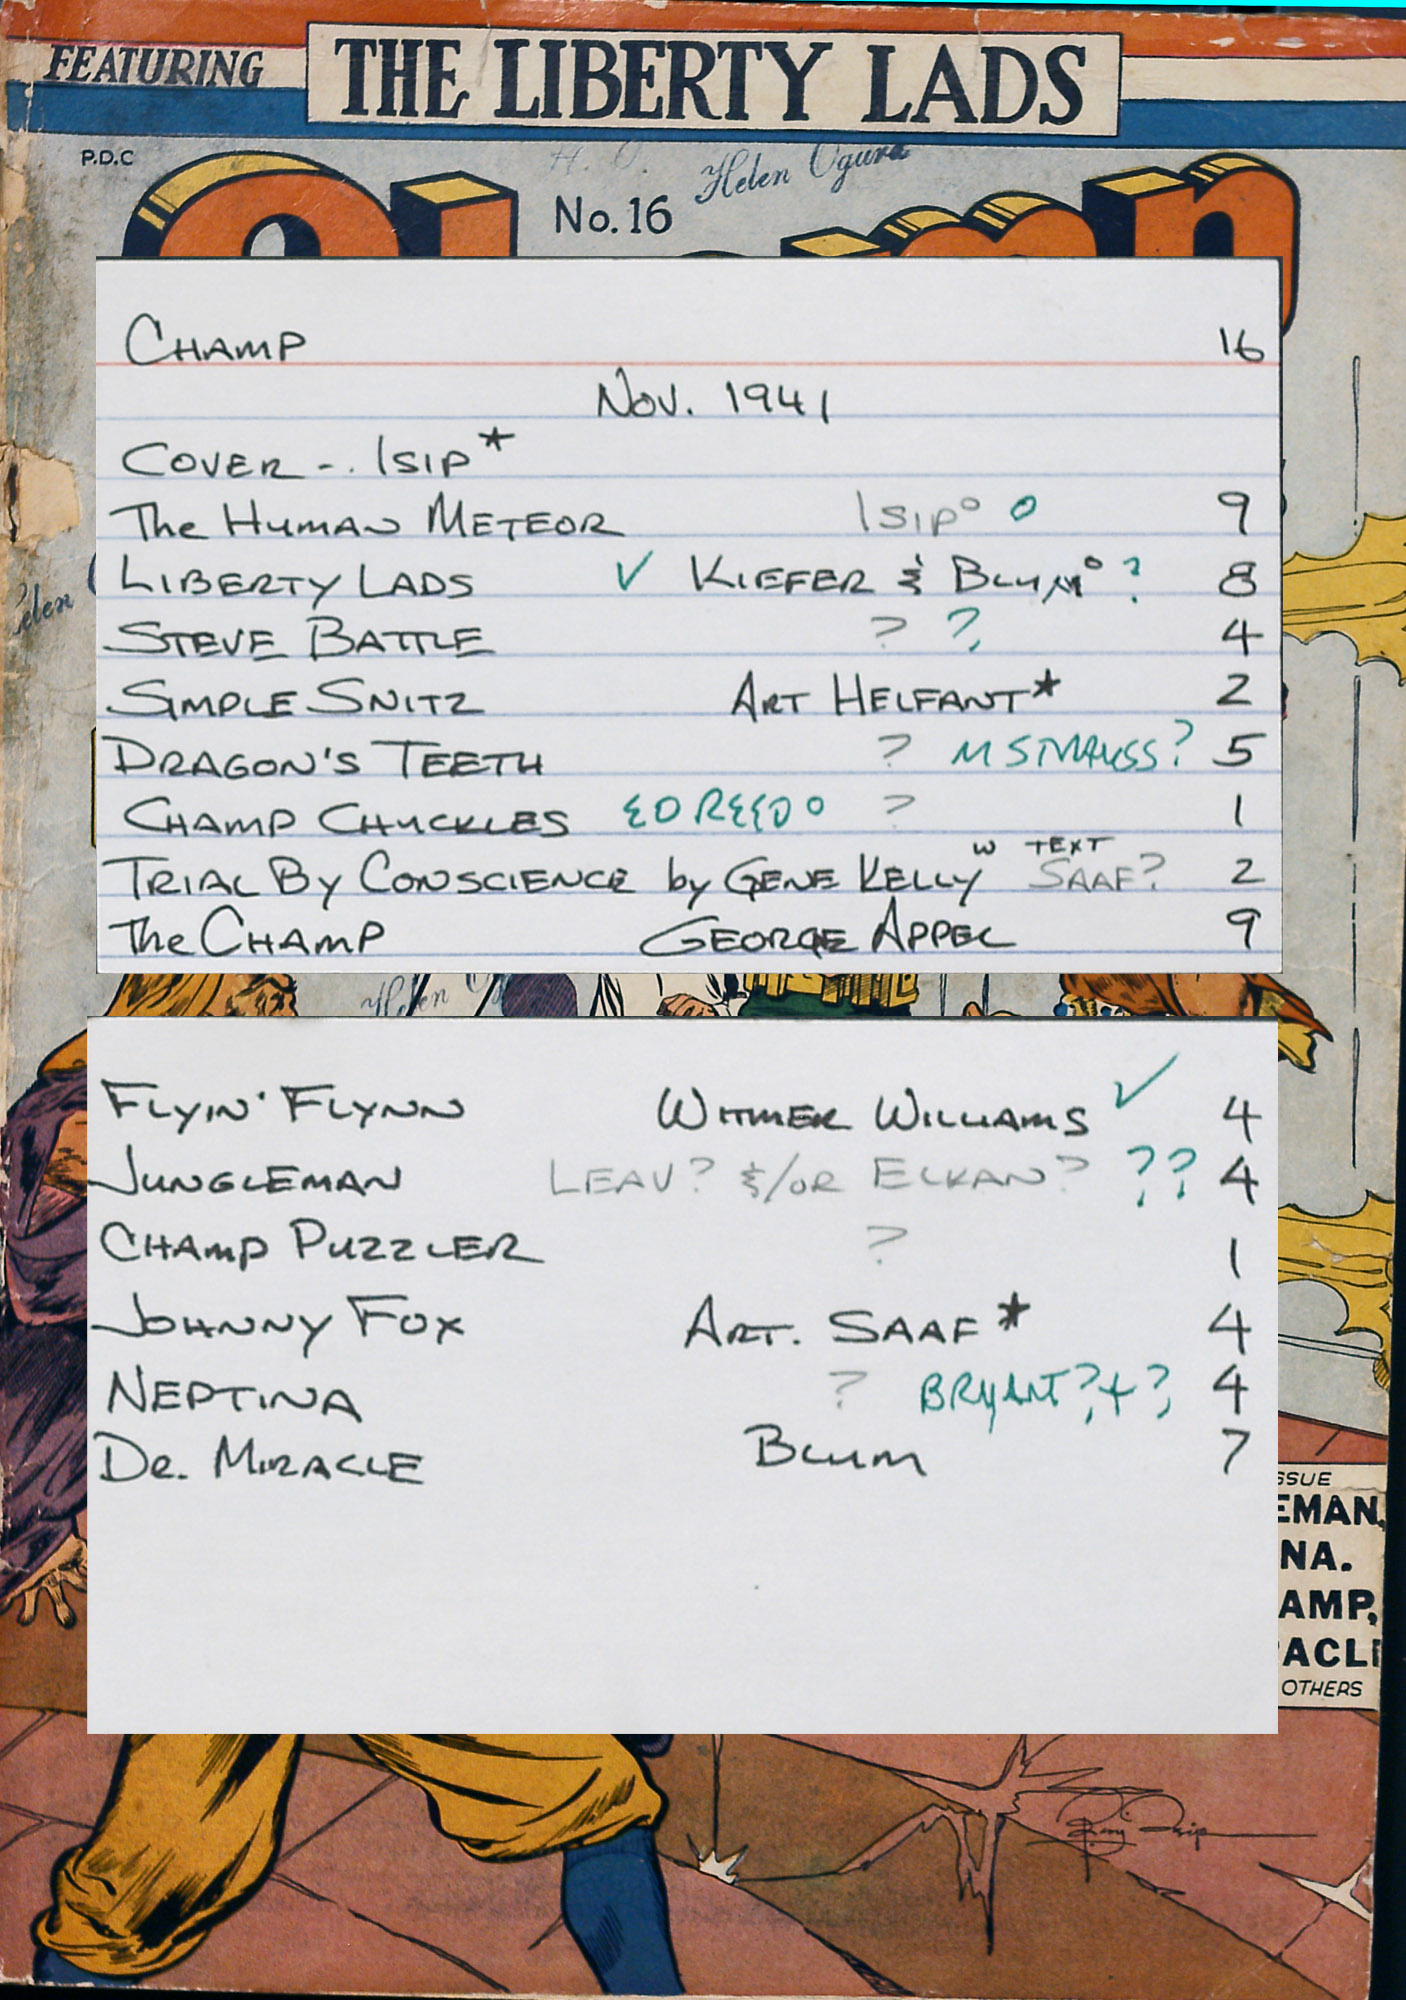 FEATURING THE LIBERTY LADS
P.D.C
H. O. Helen Ogura
No. 16
CHAMP 16
NOV. 1941
COVER -. ISIP *
The HUMAN METEOR ISIP° o 9
LIBERTY LADS ✓ KIEFER & BLUM° ? 8
STEVE BATTLE ? ? 4
SIMPLE SNITZ ART HELFANT * 2
DRAGON'S TEETH ? M STRAUSS? 5
CHAMP CHUCKLES ED REED o ? 1
TRIAL BY CONSCIENCE by GENE KELLY w TEXT SAAF? 2
The CHAMP GEORGE APPEL 9
Helen
Helen
FLYIN' FLYNN WITMER WILLIAMS ✓ 4
JUNGLEMAN LEAV? &/OR ELKAN? ?? 4
CHAMP PUZZLER ? 1
JOHNNY FOX ART. SAAF * 4
NEPTINA ? BRYANT? + ? 4
DR. MIRACLE BLUM 7
SSUE
EMAN,
NA.
AMP,
ACLE
OTHERS